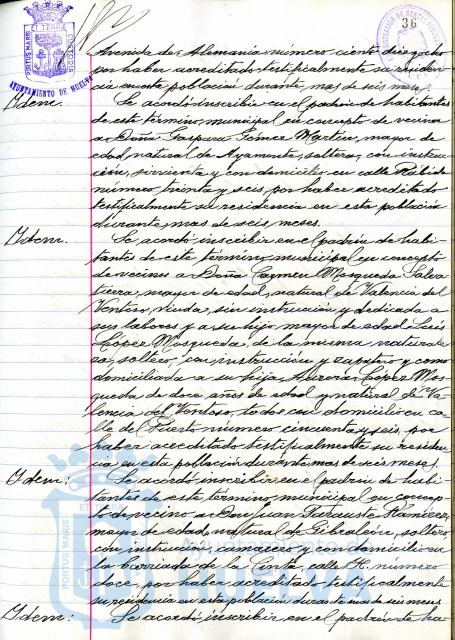 36
AYUNTAMIENTO DE HUELVA
PORTUS MARIS
CUSTODIA
Avenida de Alemania número ciento dieziocho
por haber acreditado testificalmente su residen-
cia en esta población durante mas de seis meses.
Idem. Se acordó inscribir en el padrón de habitantes
de este término municipal en concepto de vecina
a Doña Gaspara Gómez Martín, mayor de
edad, natural de Ayamonte, soltera, con instruc-
ción, sirvienta y con domicilio en calle Rábida
número treinta y seis, por haber acreditado
testificalmente su residencia en esta población
durante mas de seis meses.
Idem. Se acordó inscribir en el padrón de habi-
tantes de este término municipal en concepto
de vecinos a Doña Carmen Mosqueda Salva-
tierra, mayor de edad, natural de Valencia del
Ventoso, viuda, sin instrucción y dedicada a
sus labores y a su hijo mayor de edad Luis
López Mosqueda, de la misma naturale-
za, soltero, con instrucción y zapatero y como
domiciliada a su hija Aurora López Mos-
queda de doce años de edad y natural de Va-
lencia del Ventoso, todos con domicilio en ca-
lle del Puerto número cincuenta y seis, por
haber acreditado testificalmente su residen-
cia en esta población durante mas de seis meses.
Idem: Se acordó inscribir en el padrón de habi-
tantes de este término municipal en concep-
to de vecino a Don Juan Ramírez,
mayor de edad, natural de Gibraleón, soltero,
con instrucción, camarero y con domicilio en
la barriada de la Cinta, calle H. número
doce, por haber acreditado testificalmente
su residencia en esta población durante mas de seis meses
Idem: Se acordó inscribir en el padrón de ha-
Ayuntamiento de
HUELVA